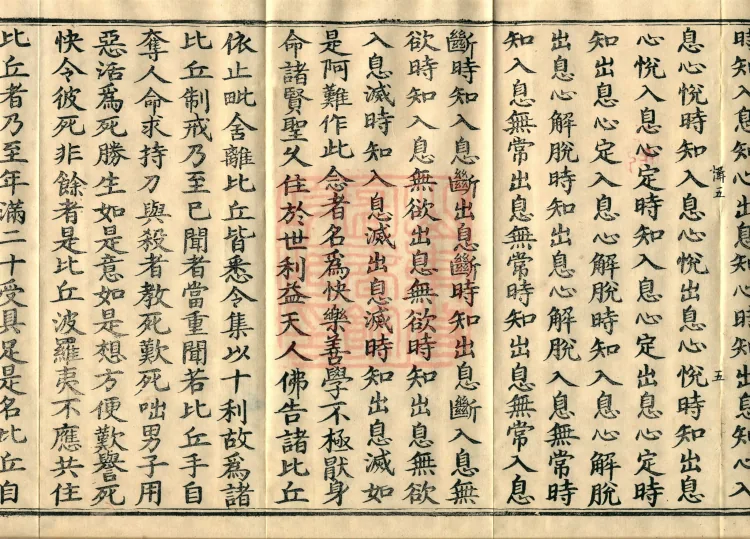 息心悅時知入息心悅出息心悅時知出息
心悅入息心定時知入息心定出息心定時
知出息心定入息心解脫時知入息心解脫
出息心解脫時知出息心解脫入息無常時
知入息無常出息無常時知出息無常入息
斷時知入息斷出息斷時知出息斷入息無
欲時知入息無欲出息無欲時知出息無欲
入息滅時知入息滅出息滅時知出息滅如
是阿難作此念者名為快樂善學不極猒身
命諸賢聖久住於世利益天人佛告諸比丘
依止毗舍離比丘皆悉令集以十利故為諸
比丘制戒乃至已聞者當重聞若比丘手自
奪人命求持刀與殺者教死歎死咄男子用
惡活為死勝生如是意如是想方便歎譽死
快令彼死非餘者是比丘波羅夷不應共住
比丘者乃至年滿二十受具足是名比丘自